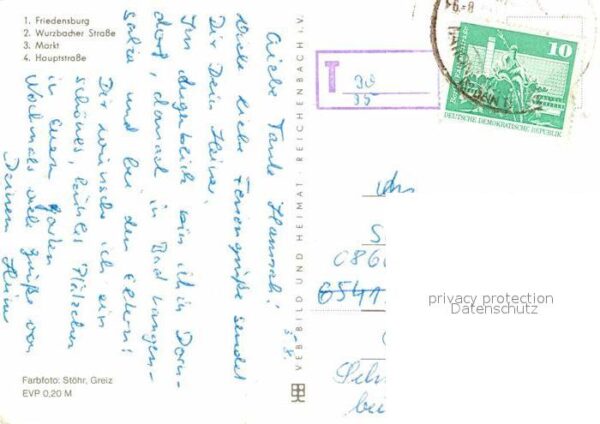 1. Friedensburg
2. Wurzbacher Straße
3. Markt
4. Hauptstraße
Liebe Tante Hannah!
5.8.
Viele liebe Feriengrüße sendet
Dir Dein Heiner.
Im Augenblick bin ich in Dorn-
dorf, danach in Bad Langen-
salza und bei den Eltern!
Dir wünsche ich ein
schönes, kühles Plätzchen
in Eurem Garten
Nochmals viele Grüße von
Deinem Heiner
Farbfoto: Stöhr, Greiz
EVP 0,20 M
VEB BILD UND HEIMAT · REICHENBACH i. V.
T
30
35
10
DEUTSCHE DEMOKRATISCHE REPUBLIK
6541
privacy protection
Datenschutz